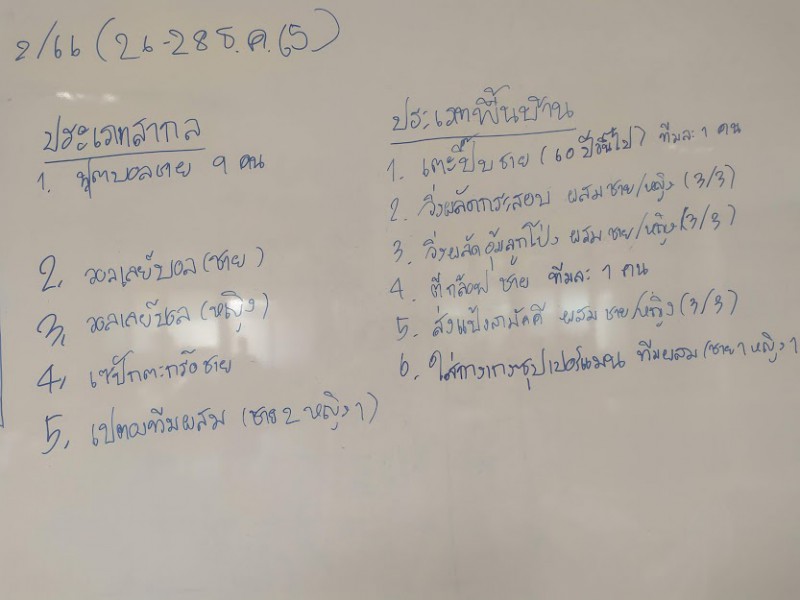 2/66 (26-28 ธ.ค.65)
ประเภทสากล
1. ฟุตบอลชาย 9 คน
2. วอลเลย์บอล (ชาย)
3. วอลเลย์บอล (หญิง)
4. เซปักตะกร้อชาย
5. เปตองทีมผสม (ชาย 2 หญิง 1)
ประเภทพื้นบ้าน
1. เตะปี๊บชาย (60 ปีขึ้นไป) ทีมละ 1 คน
2. วิ่งผลัดกระสอบ ผสมชาย/หญิง (3/3)
3. วิ่งผลัดอุ้มลูกโป่ง ผสมชาย/หญิง (3/3)
4. ตีกล้อฟ ชาย ทีมละ 1 คน
5. ส่งแป้งสามัคคี ผสมชาย/หญิง (3/3)
6. ใส่กางเกงซุปเปอร์แมน ทีมผสม (ชาย 1 หญิง 1